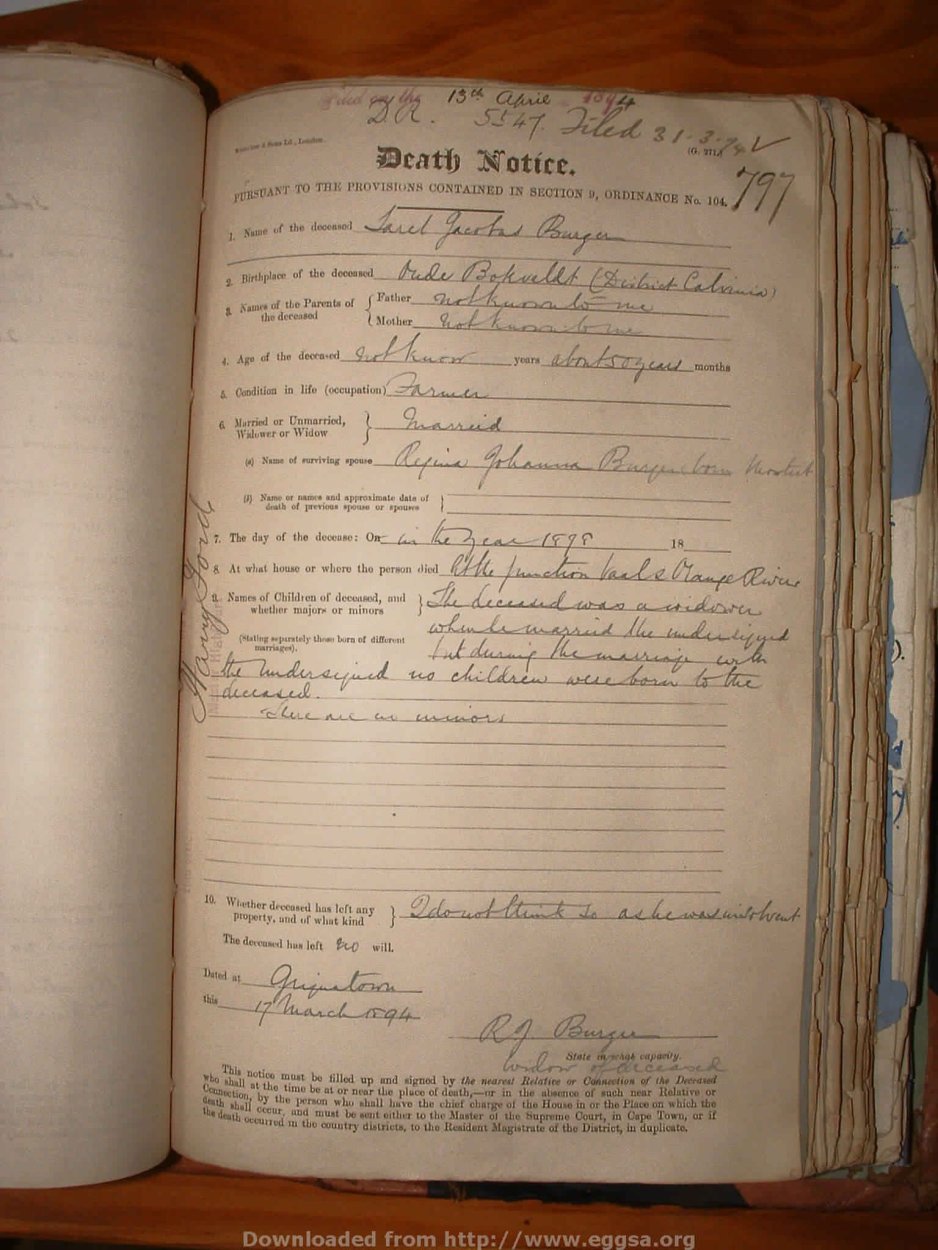 Filed on the 13th April 1894
D.R. 5547. Filed 31-3-94
Waterlow & Sons Ld., London.
(G. 271.)
Death Notice.
797
PURSUANT TO THE PROVISIONS CONTAINED IN SECTION 9, ORDINANCE No. 104.
1. Name of the deceased Sarel Jacobus Burger
2. Birthplace of the deceased Oude Bokveldt (District Calvinia)
3. Names of the Parents of the deceased { Father not known to me
{ Mother Not known to me
4. Age of the deceased Not know years about 50 years months
5. Condition in life (occupation) Farmer
6. Married or Unmarried, Widower or Widow } Married
(a) Name of surviving spouse Regina Johanna Burger born Mostert
(b) Name or names and approximate date of death of previous spouse or spouses }
7. The day of the decease: On in the year 1878 18
8. At what house or where the person died At the junction Vaal & Orange River
9. Names of Children of deceased, and whether majors or minors } The deceased was a widower
when he married the undersigned
(Stating separately those born of different marriages). but during the marriage with
the undersigned no children were born to the
deceased.
There are no minors
10. Whether deceased has left any property, and of what kind } I do not think so as he was insolvent
The deceased has left no will.
Dated at Griquatown
this 17 March 1894
R J Burger
State in what capacity.
Widow of deceased
This notice must be filled up and signed by the nearest Relative or Connection of the Deceased
who shall at the time be at or near the place of death,—or in the absence of such near Relative or
Connection, by the person who shall have the chief charge of the House in or the Place on which the
death shall occur, and must be sent either to the Master of the Supreme Court, in Cape Town, or if
the death occurred in the country districts, to the Resident Magistrate of the District, in duplicate.
Downloaded from http://www.eggsa.org